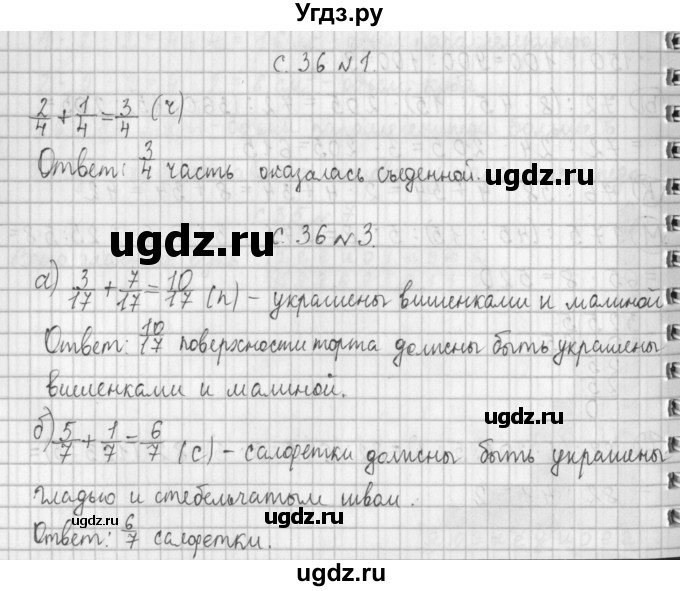 Угдз.ру
С. 36 №1.
2/4 + 1/4 = 3/4 (ч)
Ответ: 3/4 часть оказалась съеденной.
ugdz.ru
ugdz.ru
С. 36 №3.
а) 3/17 + 7/17 = 10/17 (п) – украшены вишенками и малиной
Ответ: 10/17 поверхности торта должны быть украшены
вишенками и малиной.
б) 5/7 + 1/7 = 6/7 (с) – салфетки должны быть украшены
гладью и стебельчатым швом.
ugdz.ru
ugdz.ru
Ответ: 6/7 салфетки.
ugdz.ru